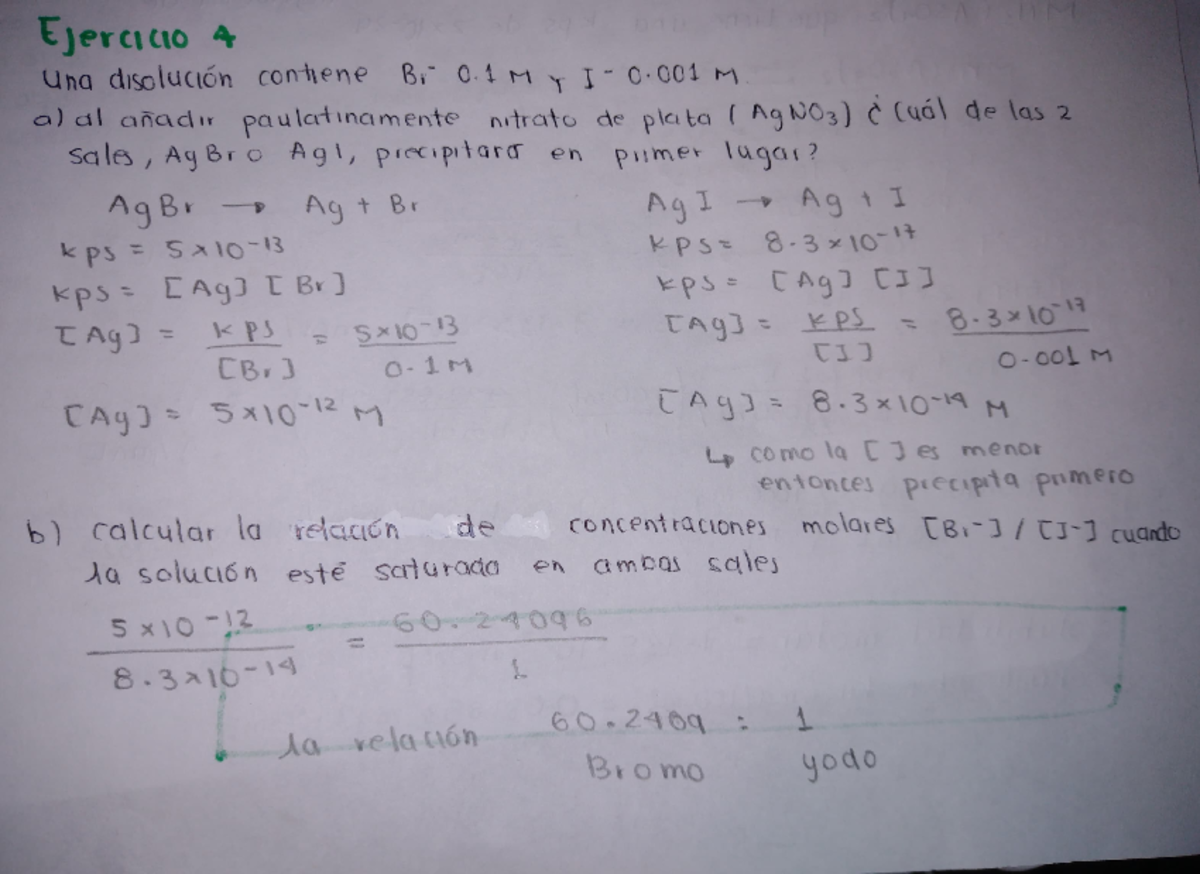 Ejercicio 4
Una disolución contiene Br- 0.1 M y I- 0.001 M
a) al añadir paulatinamente nitrato de plata (AgNO3) ¿Cuál de las 2
sales, AgBr o AgI, precipitara en primer lugar?
AgBr → Ag + Br
kps = 5 x 10-13
kps = [Ag] [Br]
[Ag] = kps / [Br] = 5x10-13 / 0.1 M
[Ag] = 5x10-12 M
AgI → Ag + I
kps = 8.3 x 10-17
kps = [Ag] [I]
[Ag] = kps / [I] = 8.3x10-17 / 0.001 M
[Ag] = 8.3x10-14 M
↳ como la [ ] es menor
entonces precipita primero
b) calcular la relación de concentraciones molares [Br-] / [I-] cuando
la solución esté saturada en ambas sales
5 x10-12 / 8.3x10-14 = 60.24096 / 1
la relación 60.2409 : 1
Bromo yodo